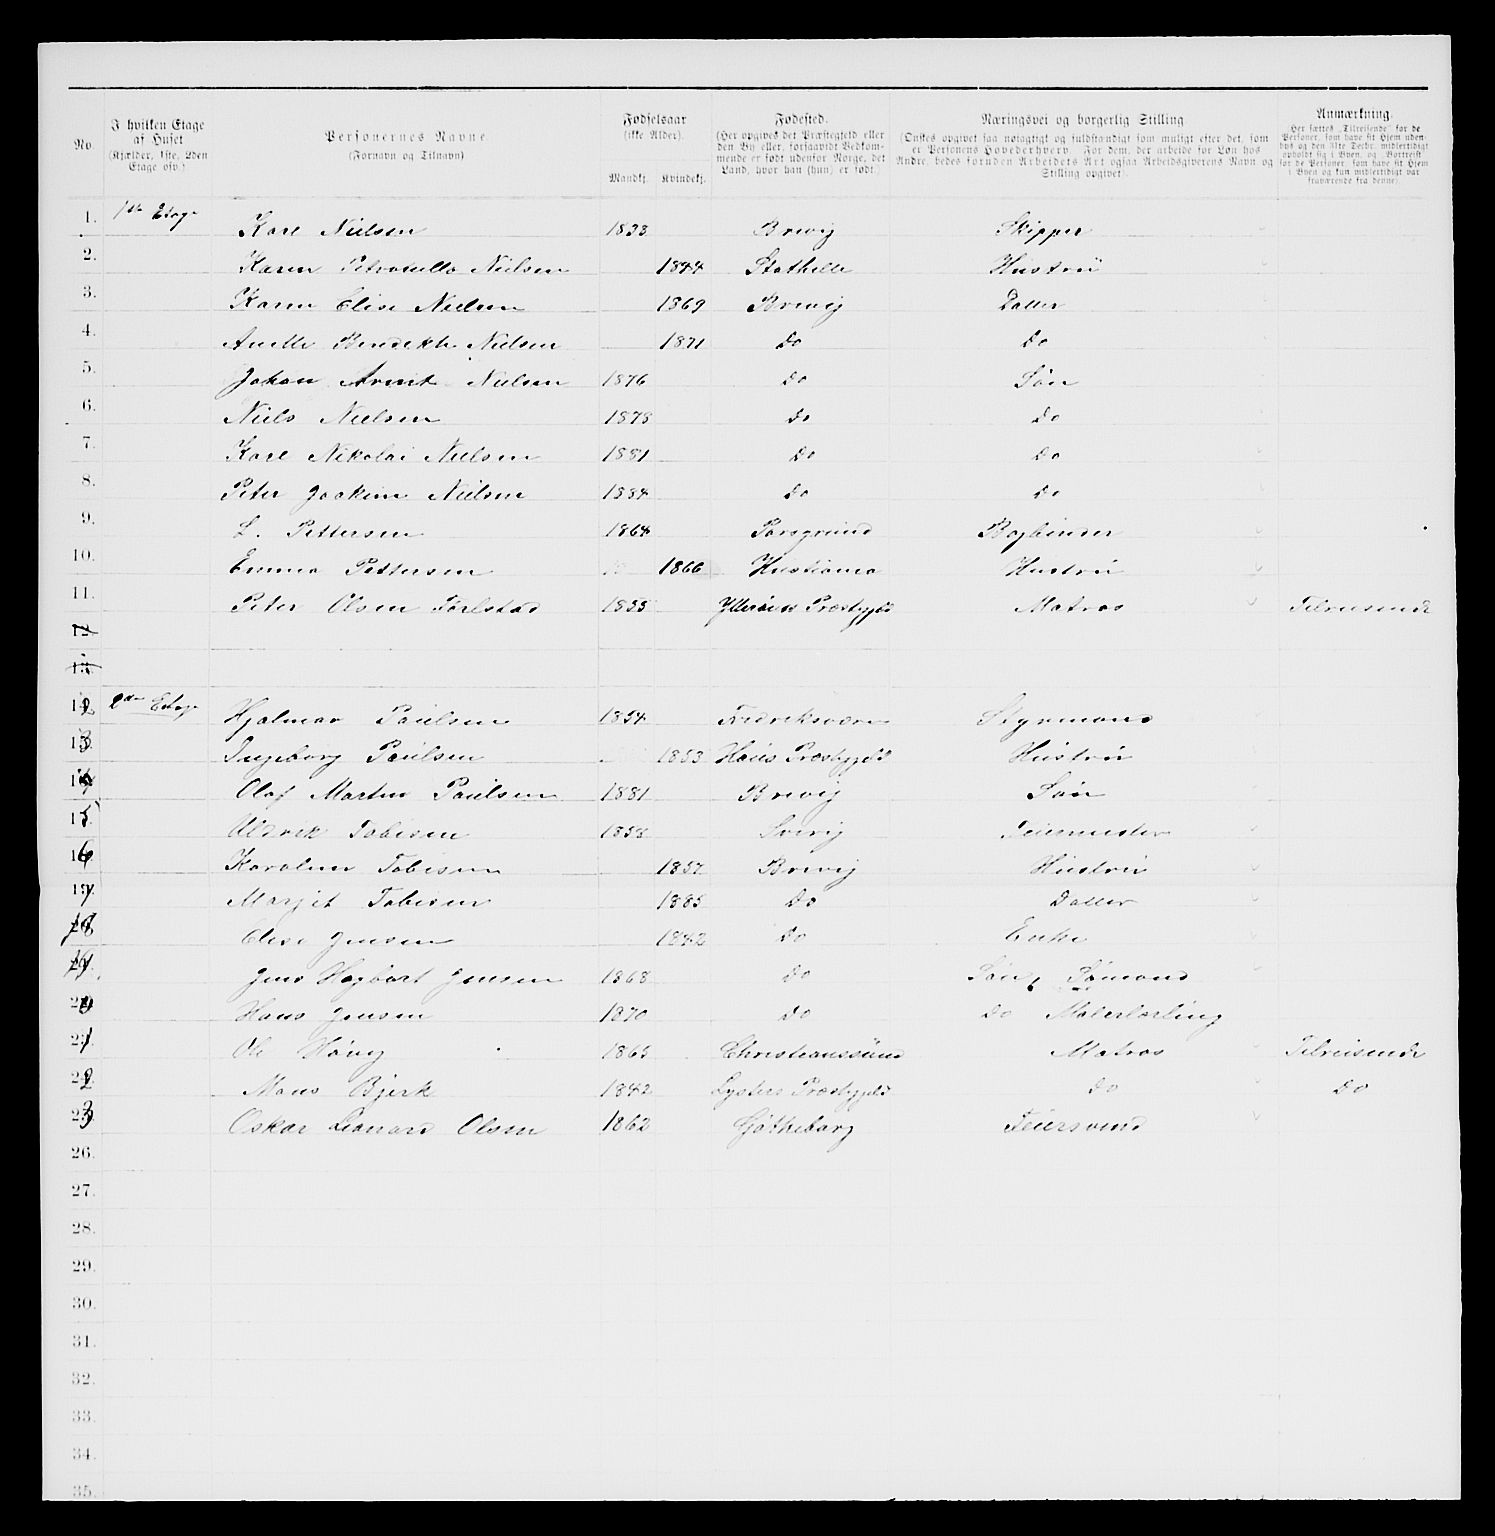 No. I hvilken Etage af Huset (Kjælder, 1ste, 2den Etage osv.) Personernes Navne. (Fornavn og Tilnavn) Fødselsaar (ikke Alder). Mandkj. Kvindekj. Fødested. (Her opgives det Præstegjeld eller den By eller, forsaavidt Vedkommende er født udenfor Norge, det Land, hvor han (hun) er født.) Næringsvei og borgerlig Stilling. (Ønskes opgivet saa nøiagtigt og fuldstændigt som muligt efter det, som er Personens Hovederhverv. For dem, der arbeide for Løn hos Andre, bedes foruden Arbeidets Art ogsaa Arbeidsgiverens Navn og Stilling opgivet). Anmærkning. (Her sættes „Tilreisende" for de Personer, som have sit Hjem udenbys og den 31te Decbr. midlertidigt opholdt sig i Byen, og „Bortreist" for de Personer, som have sit Hjem i Byen og kun midlertidigt var fraværende fra denne).
1. 1ste Etage Karl Nielsen 1833 Brevig Skipper
2. Karen Petronella Nielsen 1844 Stathelle Hustrü
3. Karen Elise Nielsen 1869 Brevig Datter
4. Anette Benedikte Nielsen 1871 Do Do
5. Johan Arent Nielsen 1876 Do Søn
6. Niels Nielsen 1878 Do Do
7. Karl Nikolai Nielsen 1881 Do Do
8. Peter Joakim Nielsen 1884 Do Do
9. L. Pettersen 1864 Porsgrund Bogbinder
10. Emma Pettersen 1866 Kristiania Hustrü
11. Peter Olsen 1855 Ytterøens Præstegjeld Matros Tilreisende
12.
13.
12 2den Etage Hjalmar Paülsen 1854 Fredriksværn Styrmand
13 Ingeborg Paülsen 1853 Haüs Præstegjeld Hüstrü
14 Olaf Martin Paülsen 1881 Brevig Søn
15 Uldrik Tobisen 1858 Sverig Feiermester
16 Karoline Tobisen 1857 Brevig Hüstrü
17 Margit Tobisen 1885 Do Datter
18 Elise Jensen 1842 Do Enke
19 Jens Hagbart Jensen 1868 Do Søn, Sømand
20 Hans Jensen 1870 Do Do Malerlærling
21 Ole 1865 Christianssünd Matros Tilreisende
22 Mons Bjerk 1842 Lysters Præstegjeld Do Do
23 Oskar Leonard Olsen 1862 Gøtheborg Feiersvend
26.
27.
28.
29.
30.
31.
32.
33.
34.
35.